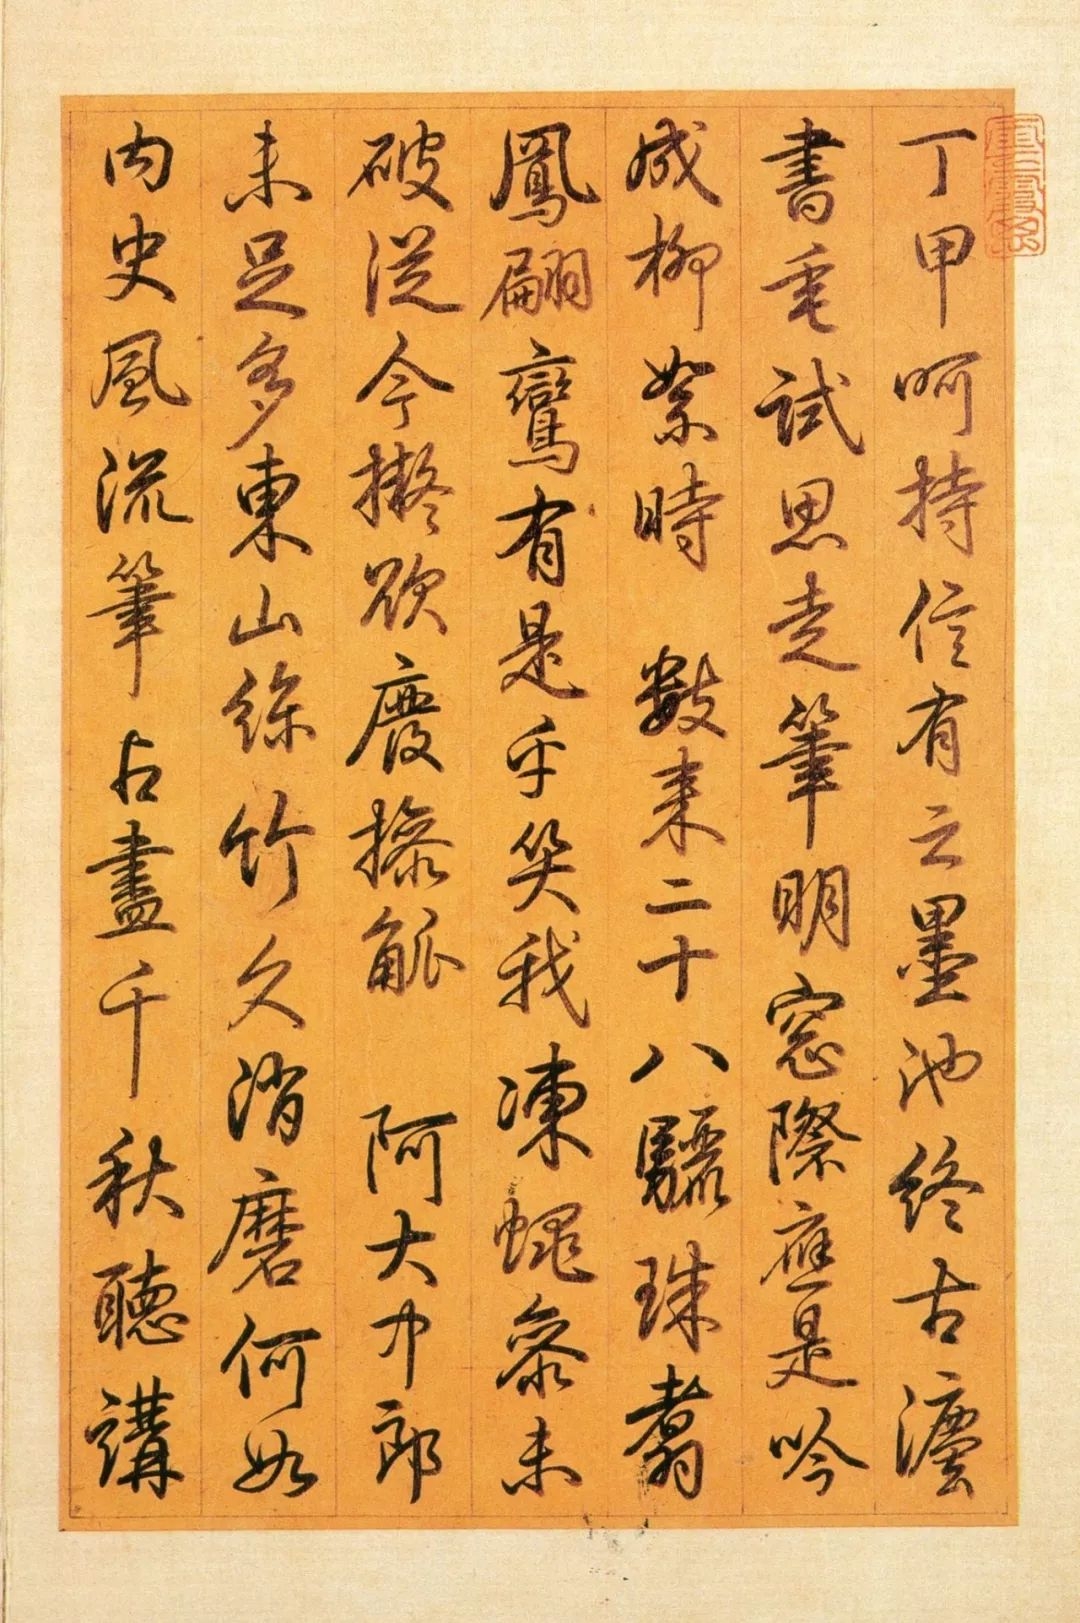 丁甲呵持信有之墨池終古灋
書垂試思走筆明窓際應是吟
成柳絮時　數來二十八驪珠翥
鳳翩鸞有是乎笑我凍蠅參未
破從今擬欲廢操觚　阿大中郎
未足多東山絲竹久消磨何如
內史風流筆占盡千秋聽講